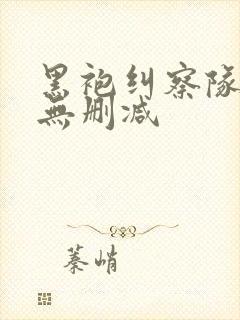 黑袍纠察隊
無删减
蓁峭